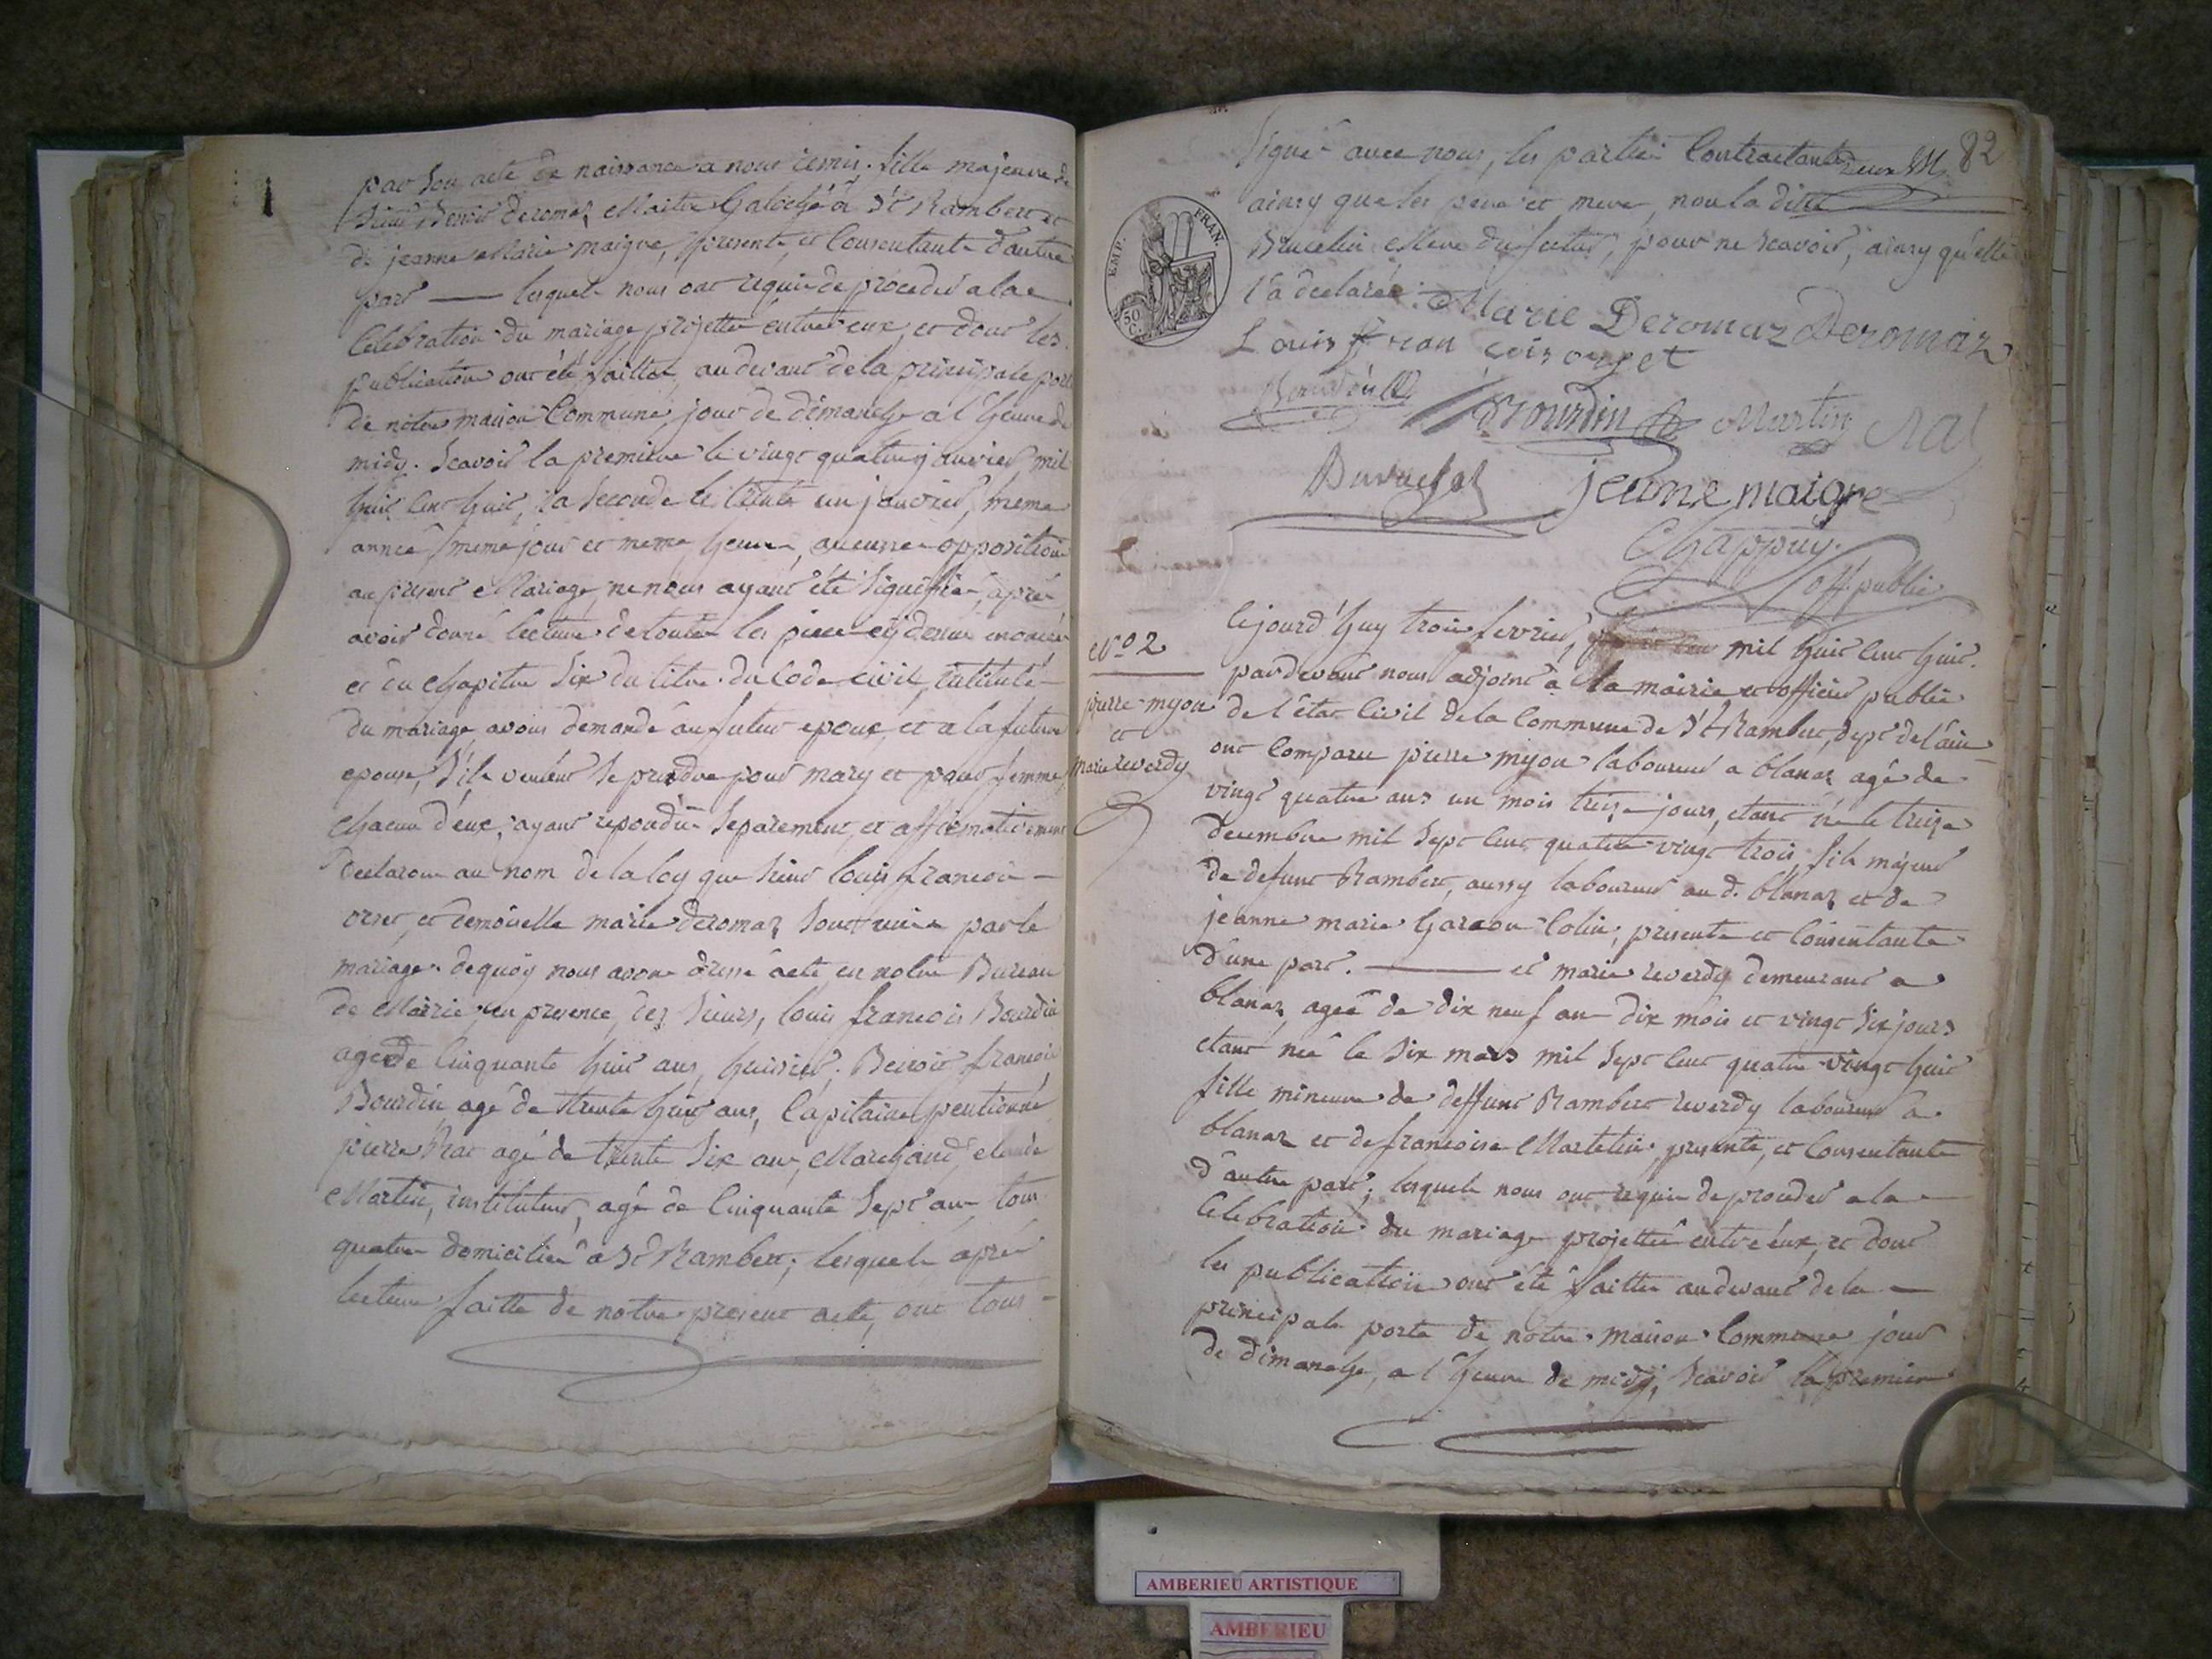 par son acte de naissance a nous remis, fille majeure de
sieur Benoit deromaz Maitre Gatoché a St Rambert et
de jeanne Marie maigre, presente, et Consentante d'autre
part — lesquels nous ont requis de proceder a la
Celebration du mariage projetté entre eux, et dont les
publications ont été faittes, au devant de la principale porte
de notre maison Commune, jour de dimanche a l'heure de
midy. Scavoir la premiere le vingt quatre janvier mil
huit cent huit, la Seconde le trente un janvier, meme
année, meme jour et meme heure, aucune opposition
au present Mariage, ne nous ayant été Signiffiée, apres
avoir donné lecture de toutes les pieces cy dessus
et du chapitre Six du titre du Code civil, intitulé
du mariage, avons demandé au futur epoux, et a la future
epouse, s'ils veulent se prendre pour mary et pour femme
chacun d'eux, ayant repondu Separement, et affirmativement
declarons au nom de la loy que Sieur louis francois
orset, et demoiselle marie deromaz Sont unis par le
mariage. de quoy nous avons dressé acte, en notre Bureau
de Mairie, en presence, des Sieurs, louis francois Bourdin
agé de Cinquante huit ans, huissier. Benoit francois
Bourdin agé de trente huit ans, Capitaine pentionné
pierre Rat agé de trente Six ans, Marchand, claude
Martin, instituteur, agé de Cinquante Sept ans, tous
quatre domiciliés a St Rambert; lesquels aprés
lecture faitte de notre present acte, ont tous
82
Signé avec nous, les parties Contractantes
ainsy que les pere et mere, non la ditte
Brucelin Mere du futur, pour ne Scavoir, ainsy qu'elle
l'a declaré.
EMP. FRAN.
50 C.
Marie Deromaz Deromaz
Louis fran cois orset
Bourdin Martin Rat
jeanne maigre
Chappuy
off. public
No 2
pierre myon
et
marie reverdy
Cejourd'huy trois fevrier, mil huit cent huit.
pardevant nous adjoint a la mairie et officier public
de l'état Civil de la Commune de St Rambert, dept de l'ain
ont Comparu pierre myon laboureur a blanaz agé de
vingt quatre ans un mois treize jours, etant né le treize
decembre mil Sept cent quatre vingt trois, fils majeur
de defunt Rambert, aussy laboureur au d. blanaz et de
jeanne marie Garcon Colin, presente et Consentante
d'une part. — et marie reverdy demeurant a
blanaz, ageé de dix neuf ans dix mois et vingt Six jours
etant neé le Six mars mil Sept cent quatre vingt huit
fille mineure de deffunt Rambert reverdy laboureur a
blanaz et de francoise Martelin, presente, et Consentante
d'autre part; lesquels nous ont requis de proceder a la
Celebration du mariage projetté entre eux, et dont
les publications ont été faittes au devant de la
principale porte de notre maison Commune jour
de dimanche, a l'heure de midy, Scavoir la premiere
AMBERIEU ARTISTIQUE
AMBERIEU